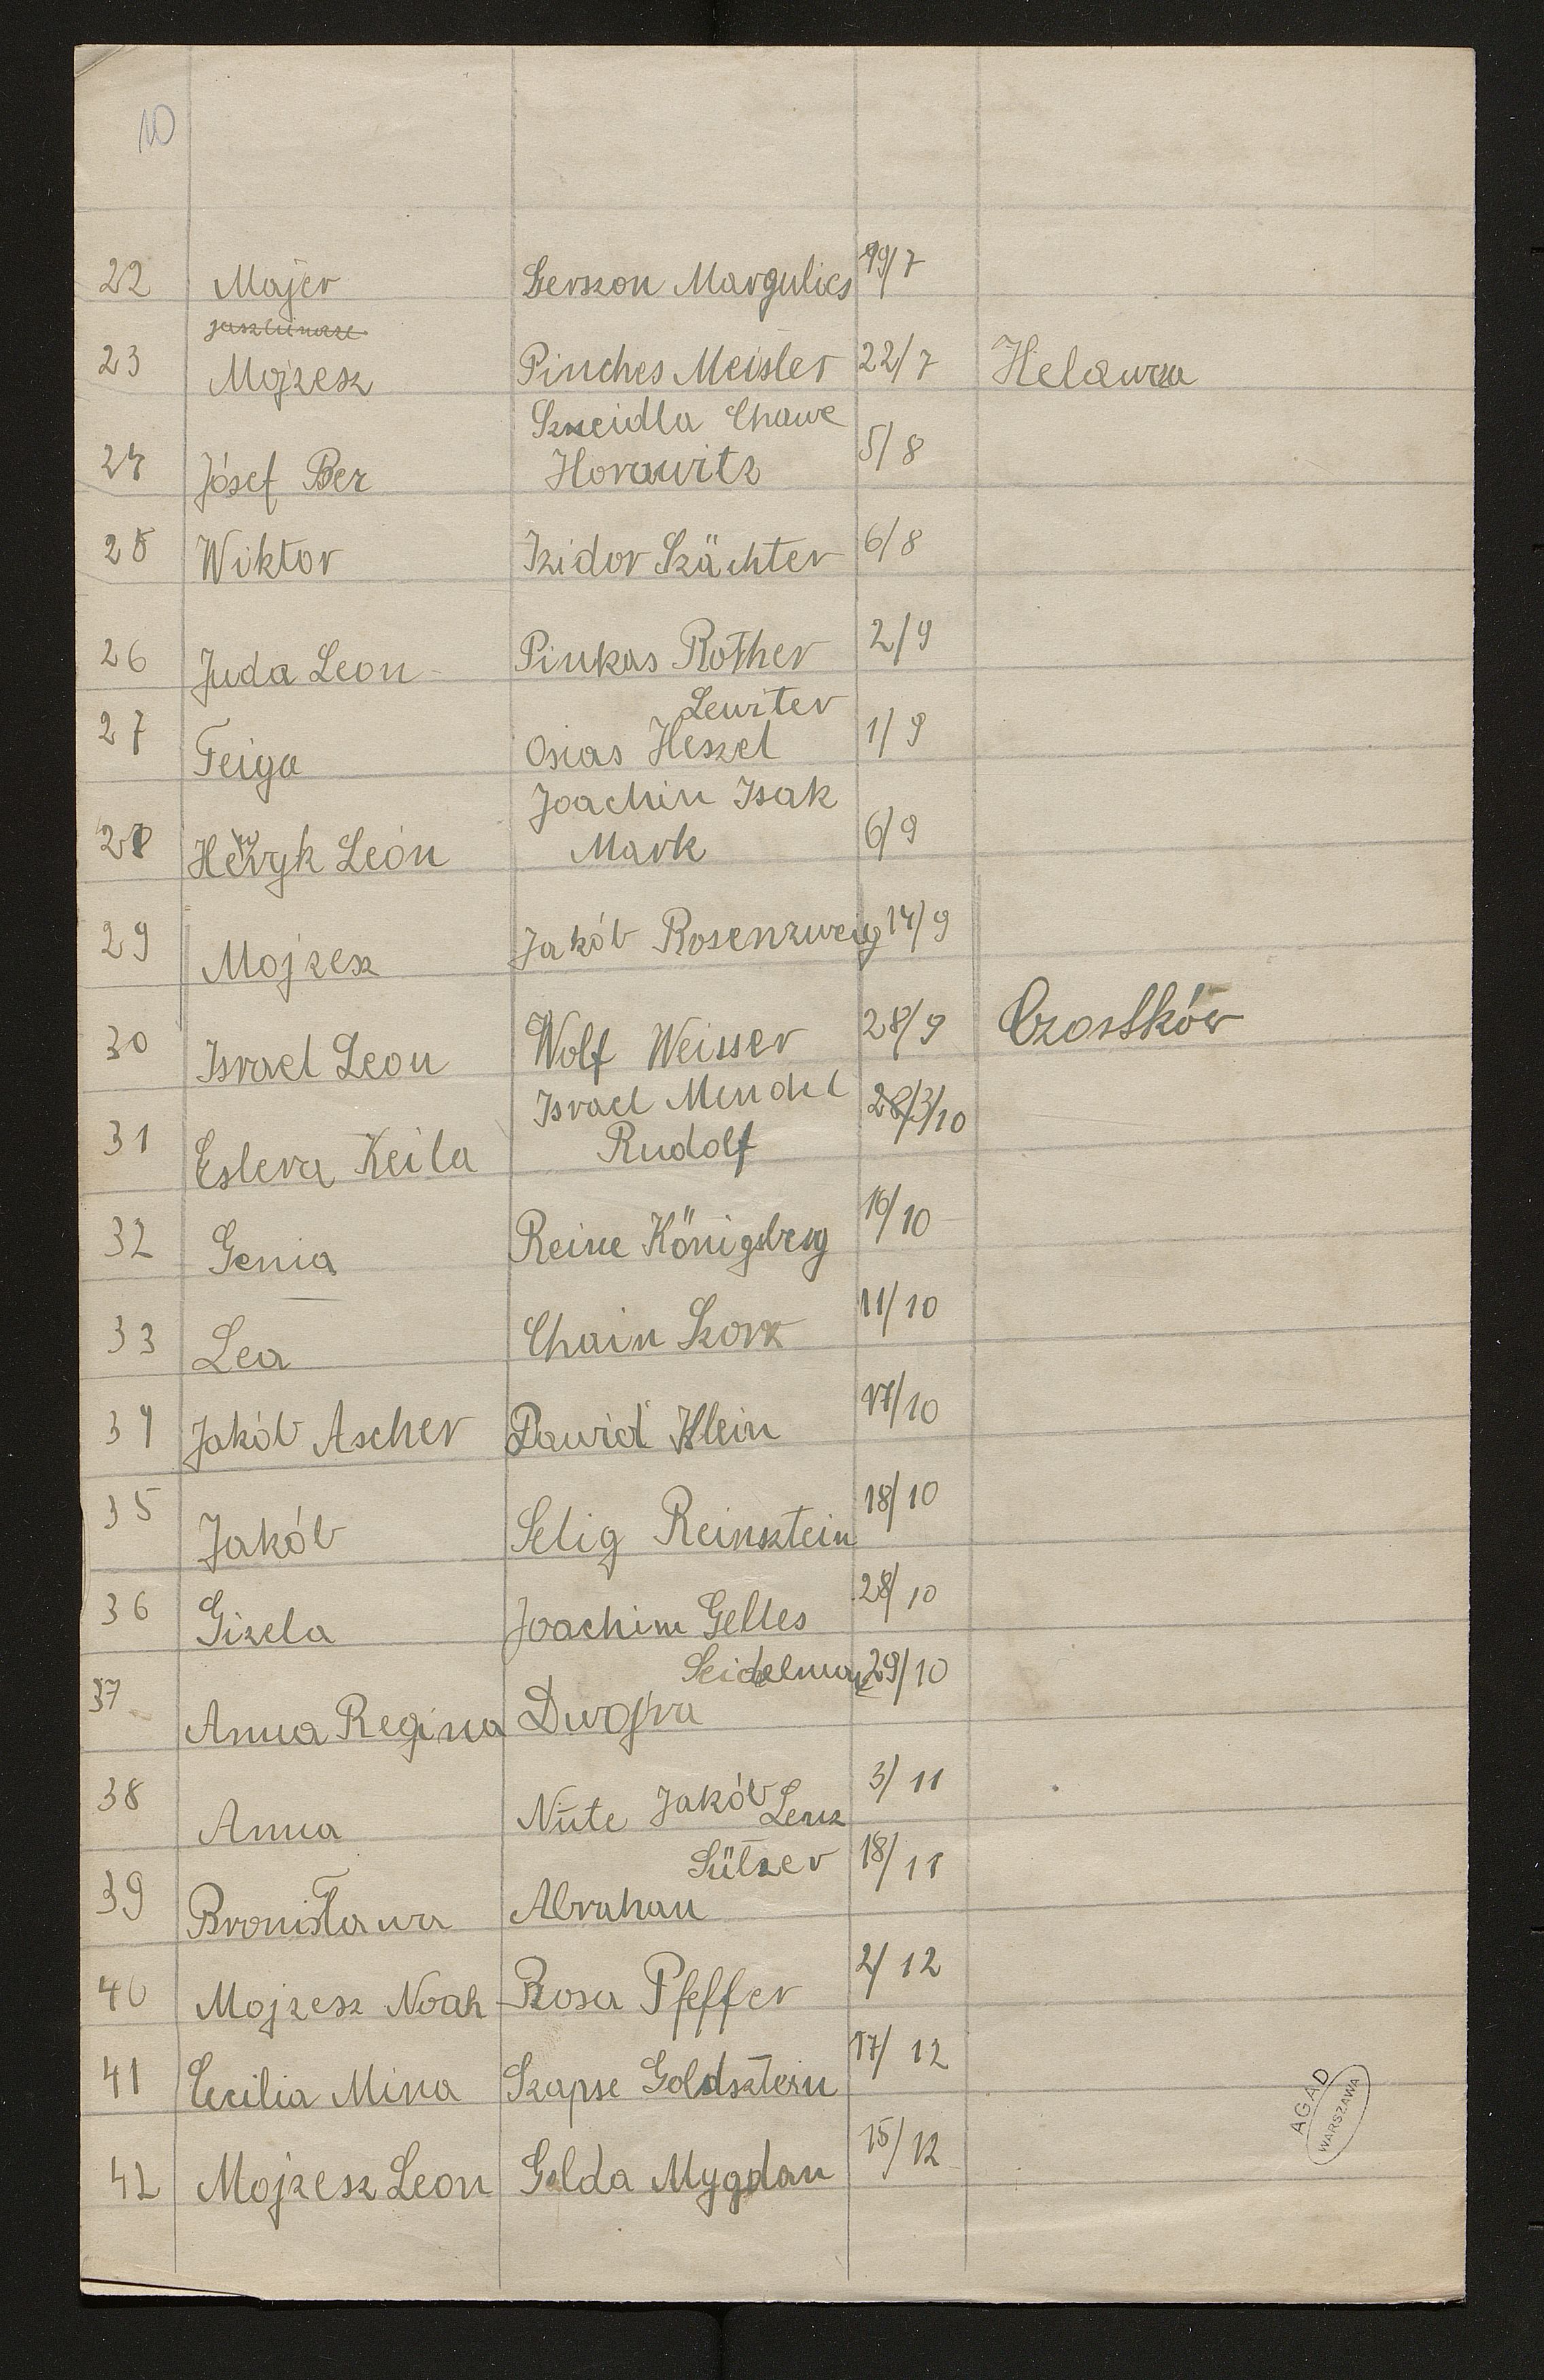 10
22 Majer Gerszon Margulies 19/7
23 Mojzesz Pinches Meisler 22/7
Szneidla Chawe
24 Jósef Ber Horowitz 5/8
25 Wiktor Izidor Szächter 6/8
26 Juda Leon Pinkas Rother 2/9
Leuiter
27 Feiga Osias Heszel 1/9
Joachin Isak
28 Henryk León Mark 6/9
29 Mojzesz Jakób Rosenzweig 14/9
30 Israel Leon Wolf Weisser 28/9 Czostków
Israel Mendel
31 Estera Keila Rudolf 28/3/10
32 Genia Reine Königsberg 10/10
33 Lea Chain Szorr 11/10
34 Jakób Ascher Dawid Klein 17/10
35 Jakób Selig Reinsztein 18/10
36 Gizela Joachim Gelles 28/10
Seidelman
37 Anna Regina Dwojra 29/10
38 Anna Nute Jakób Lenz 3/11
Sützer
39 Bronisława Abraham 18/11
40 Mojzesz Noah Rosa Pfeffer 2/12
41 Cecilia Mina Szapse Goldsztein 17/12
42 Mojzesz Leon Golda Mygdan 15/12
AGAD
WARSZAWA